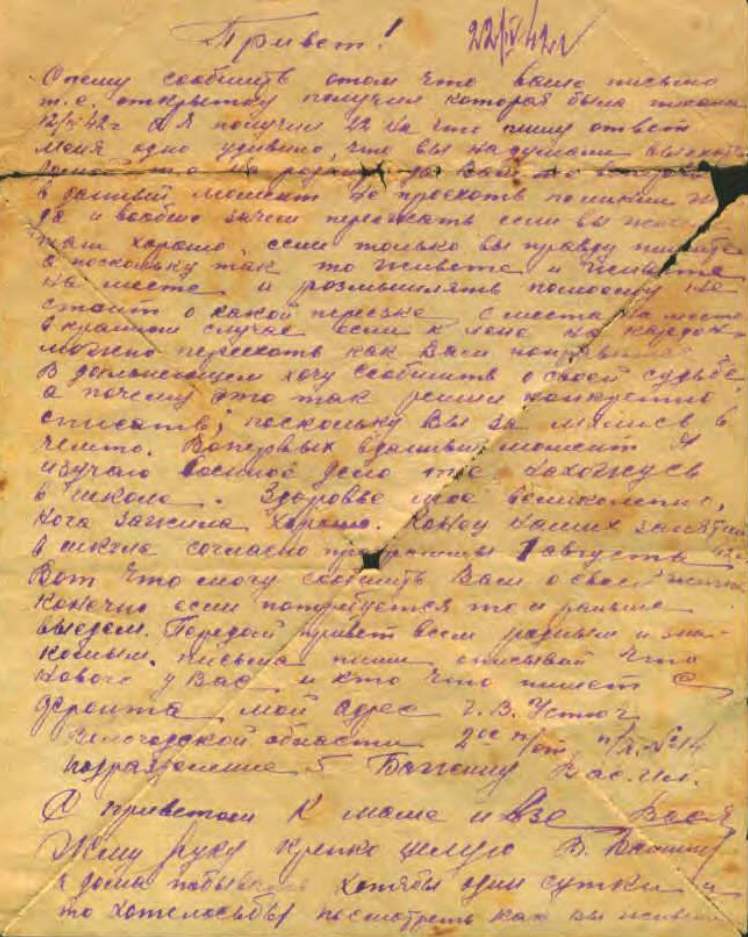 Привет! 22/IV 42г
Спешу сообщить отом что ваше письмо
т.е. открытку получил которая была писана
12/ 42г а я получил 22 на что пишу ответ
меня одно удивило, что вы надумали
то на родину да Вам то
в данный момент не проехать по
да и вообще зачем переезжать если вы
там хорошо, если только вы правду пишите
а поскольку так то живете и живите
на месте и розмышлять помоему не
стоит о какой переезке с места на место
в крайнем случае если к
можно переехать как Вам
В дальнейшем хочу сообщить о своей судьбе,
а почему это так решил конкретно
списать; поскольку Вы
Вопервых вданный момент я
изучаю военное дело т.е. нахожусь
в школе. Здоровье мое великолепно,
нога зажила хорошо. Конец наших занятий
в школе согласно программы 1 августа
Вот что могу сообщить Вам о своей жизни
конечно если потребуется то и раньше
выедем. Передай привет всем родным и зна-
комым. письма пиши описывай что
нового у Вас и кто что пишет с
фронта мой адрес г. В. Устюг
Вологодской области 2ое п/от, п/я. №14
подразделение 5 Баженину Вас. Ил.
С приветом к маме и Вася
Жму руку крепко целую В.
дома хотябы одни сутки и
то хотелосьбы посмотреть как вы